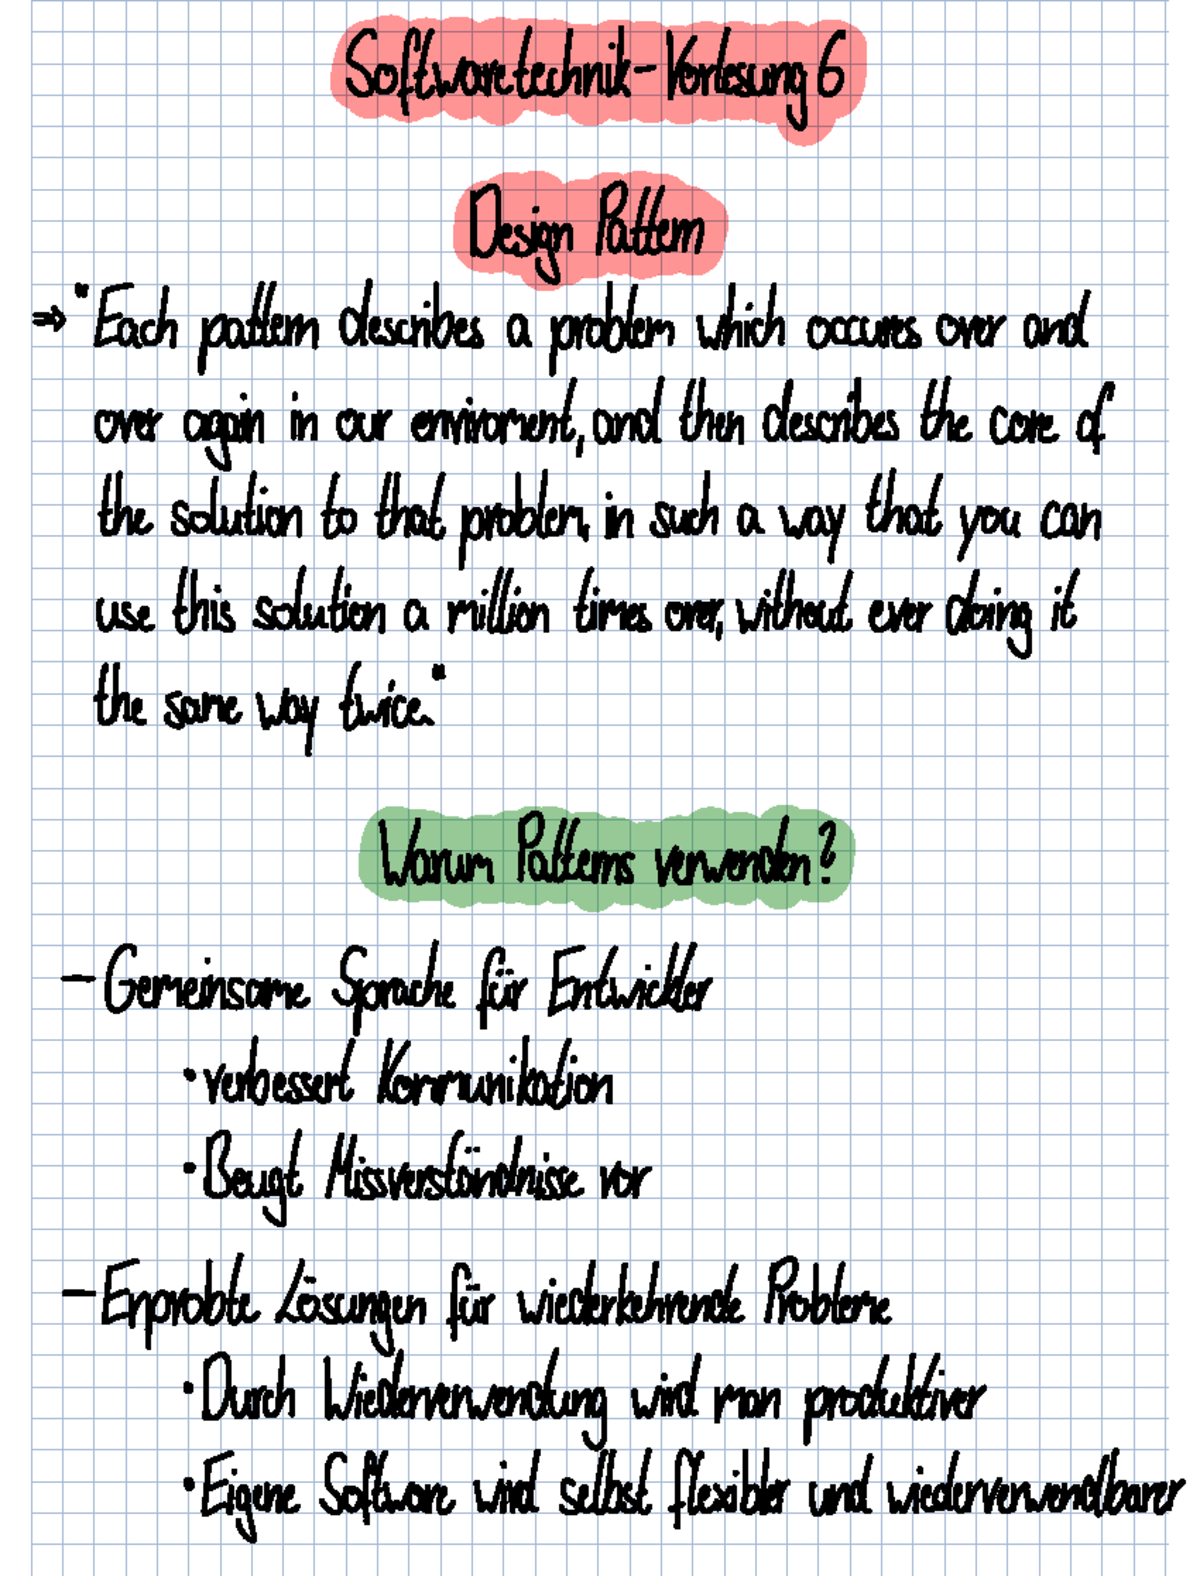 Softwaretechnik - Vorlesung 6
Design Pattern
⇒ "Each pattern describes a problem which occures over and
over again in our enviroment, and then describes the core of
the solution to that problem, in such a way that you can
use this solution a million times over, without ever doing it
the same way twice."
Warum Patterns verwenden?
- Gemeinsame Sprache für Entwickler
• verbessert Kommunikation
• Beugt Missverständnisse vor
- Erprobte Lösungen für wiederkehrende Probleme
• Durch Wiederverwendung wird man produktiver
• Eigene Software wird selbst flexibler und wiederverwendbarer